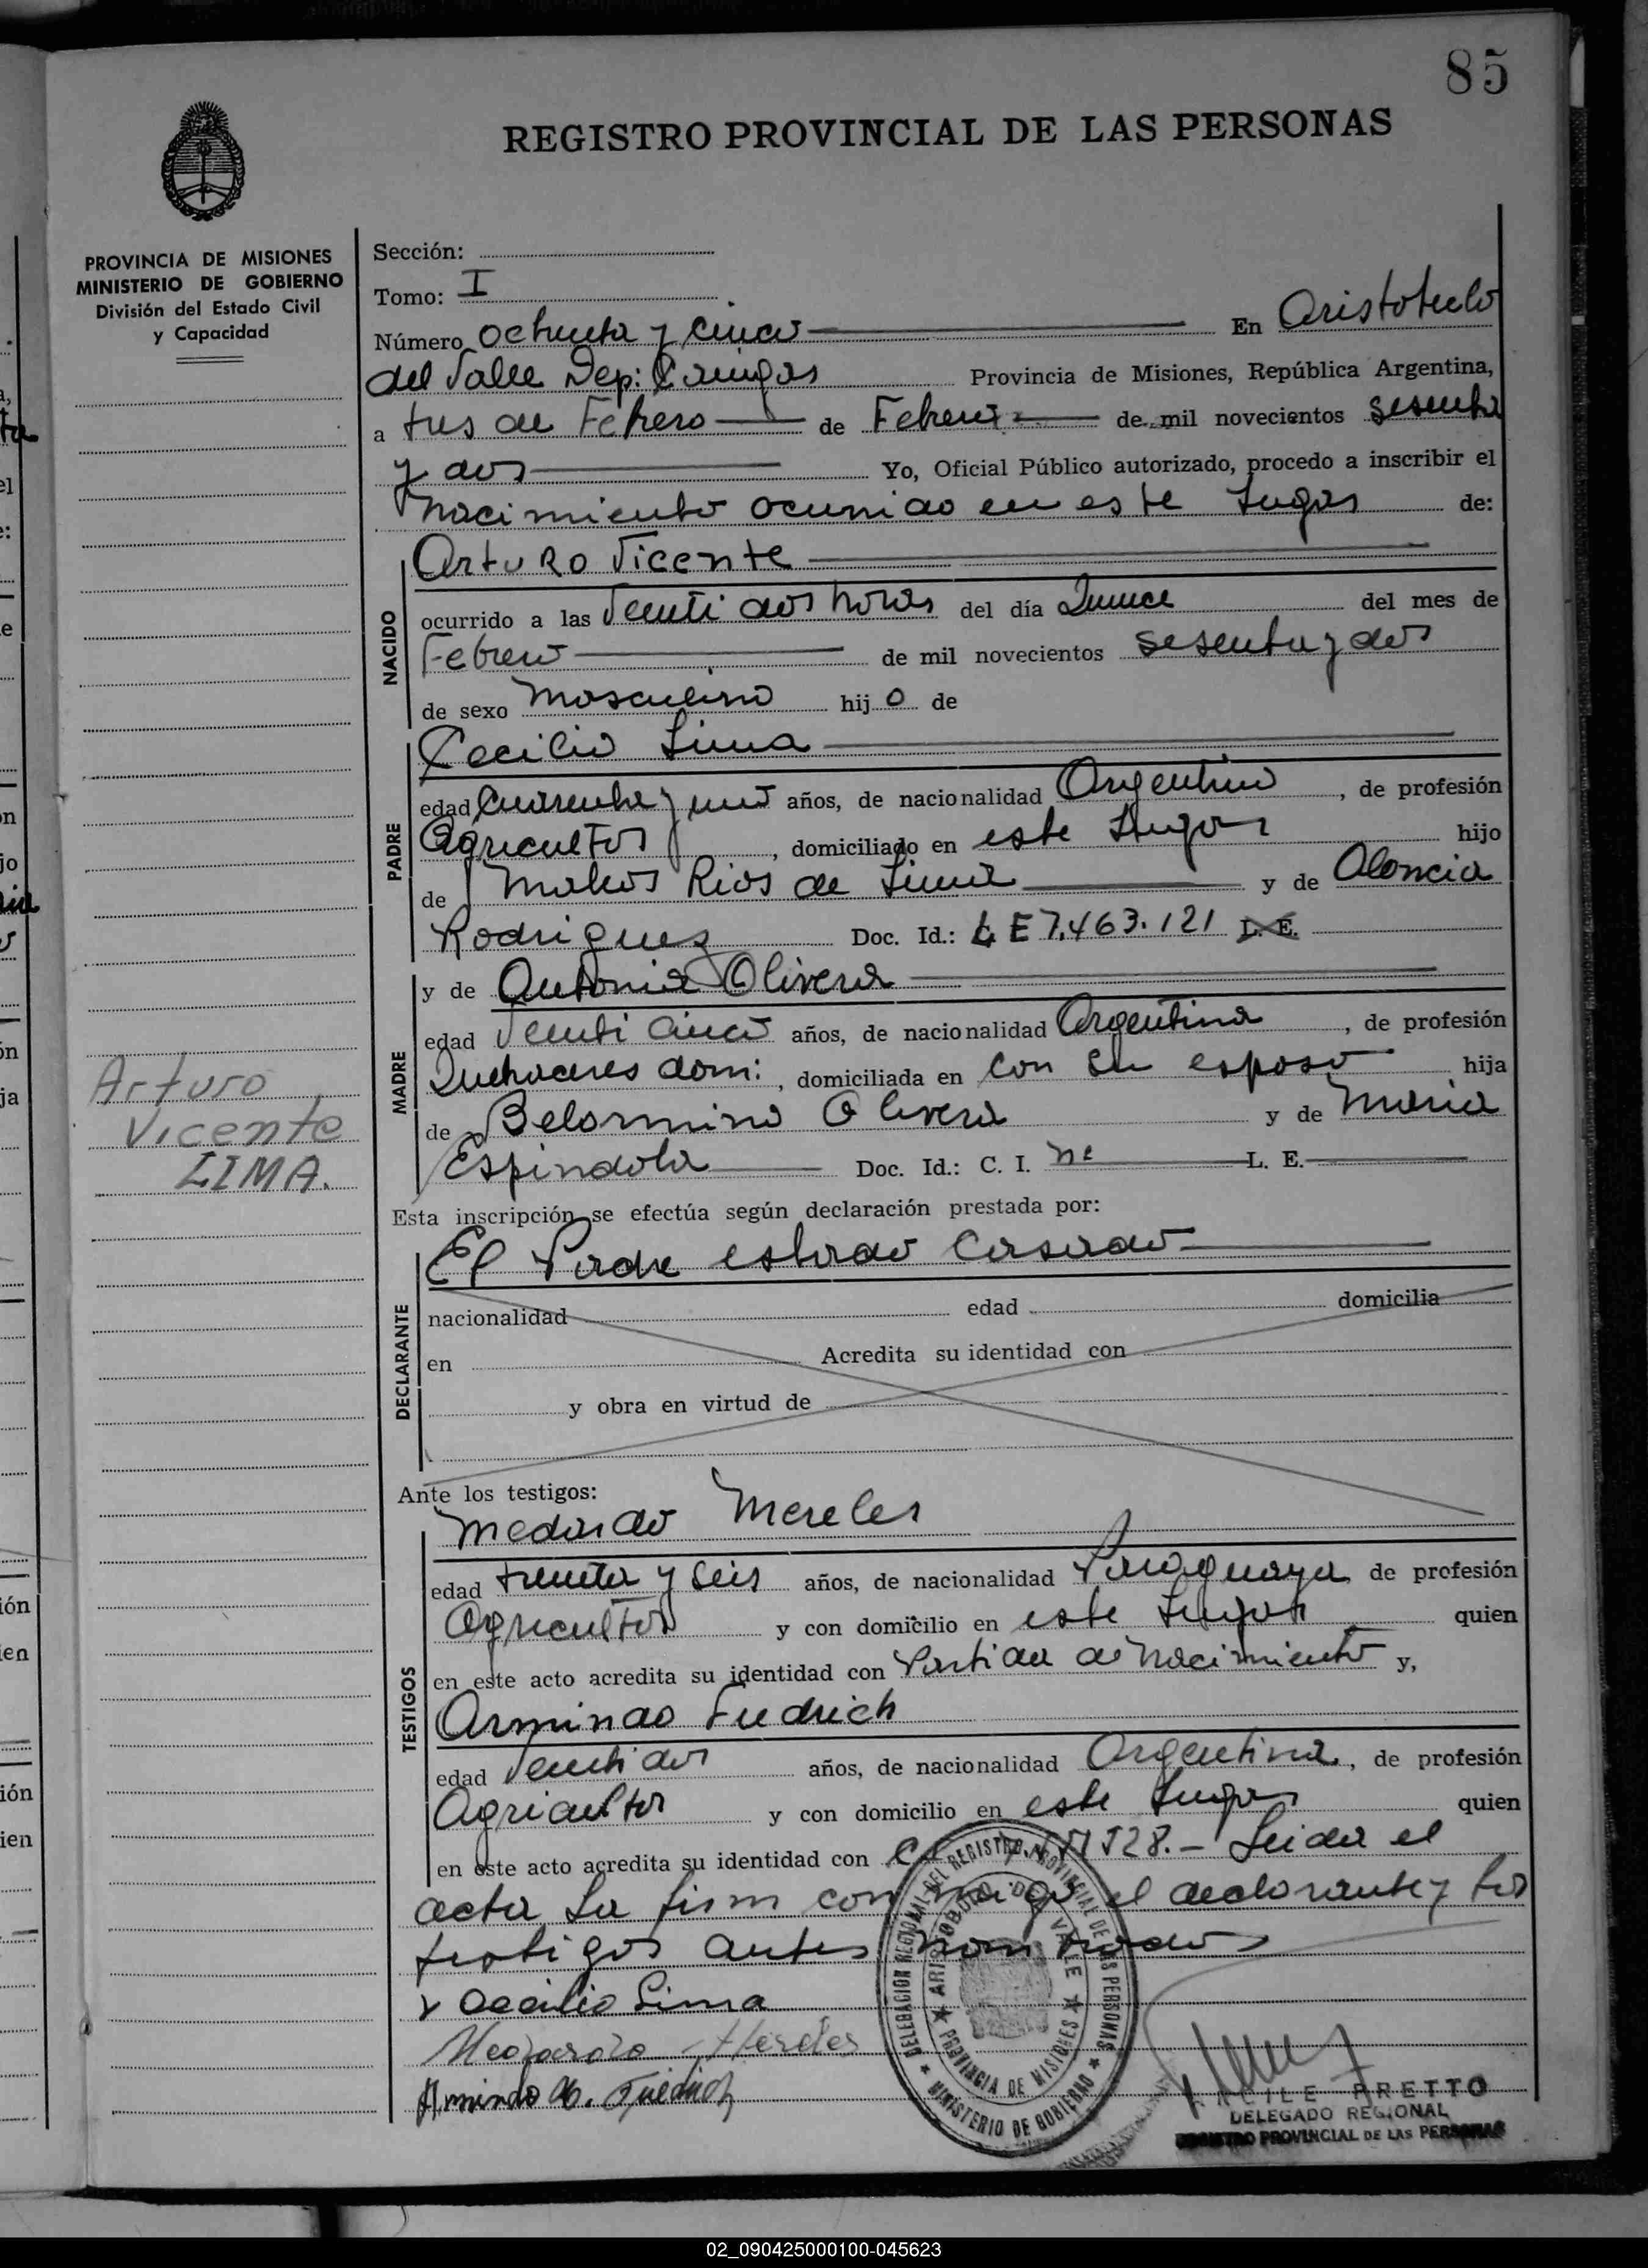 85
REGISTRO PROVINCIAL DE LAS PERSONAS
PROVINCIA DE MISIONES
MINISTERIO DE GOBIERNO
División del Estado Civil
y Capacidad
Sección:
Tomo: I
Número ochenta y cinco En Aristobulo
del Valle Dep: Cainguas Provincia de Misiones, República Argentina,
a tres de Febrero de Febrero de mil novecientos sesenta
y dos Yo, Oficial Público autorizado, procedo a inscribir el
Nacimiento ocurrido en este Lugar de:
NACIDO
Arturo Vicente
ocurrido a las Veinti dos horas del día Quince del mes de
Febrero de mil novecientos sesenta y dos
de sexo Masculino hijo de
PADRE
Cecilio Lima
edad Cuarenta y uno años, de nacionalidad Argentino, de profesión
Agricultor, domiciliado en este Lugar hijo
de Rios de Lima y de
Rodriguez Doc. Id.: L E 7.463.121 L. E.
MADRE
y de Antonia Olivera
edad Veinti cinco años, de nacionalidad Argentina, de profesión
Quehaceres dom:, domiciliada en Con su esposo hija
de Belarmino Olivera y de Maria
Espindola Doc. Id.: C. I. L. E.
Arturo
Vicente
LIMA.
Esta inscripción se efectúa según declaración prestada por:
DECLARANTE
El Padre estado Casado
nacionalidad edad domicilia
en Acredita su identidad con
y obra en virtud de
Ante los testigos:
TESTIGOS
Medardo Mereles
edad treinta y seis años, de nacionalidad Paraguaya de profesión
Agricultor y con domicilio en este Lugar quien
en este acto acredita su identidad con Partida de Nacimiento y,
Armindo Fiedrich
edad Veinti dos años, de nacionalidad Argentina, de profesión
Agricultor y con domicilio en este Lugar quien
en este acto acredita su identidad con 528.- Leida el
acta La firm conmigo el declarante y los
testigos antes nombrados
x Cecilio Lima
DELEGACION REGIONAL DEL REGISTRO PROVINCIAL DE LAS PERSONAS
MINISTERIO DE GOBIERNO
ARISTOBULO DEL VALLE
PROVINCIA DE MISIONES
PRETTO
DELEGADO REGIONAL
REGISTRO PROVINCIAL DE LAS PERSONAS
02_090425000100-045623